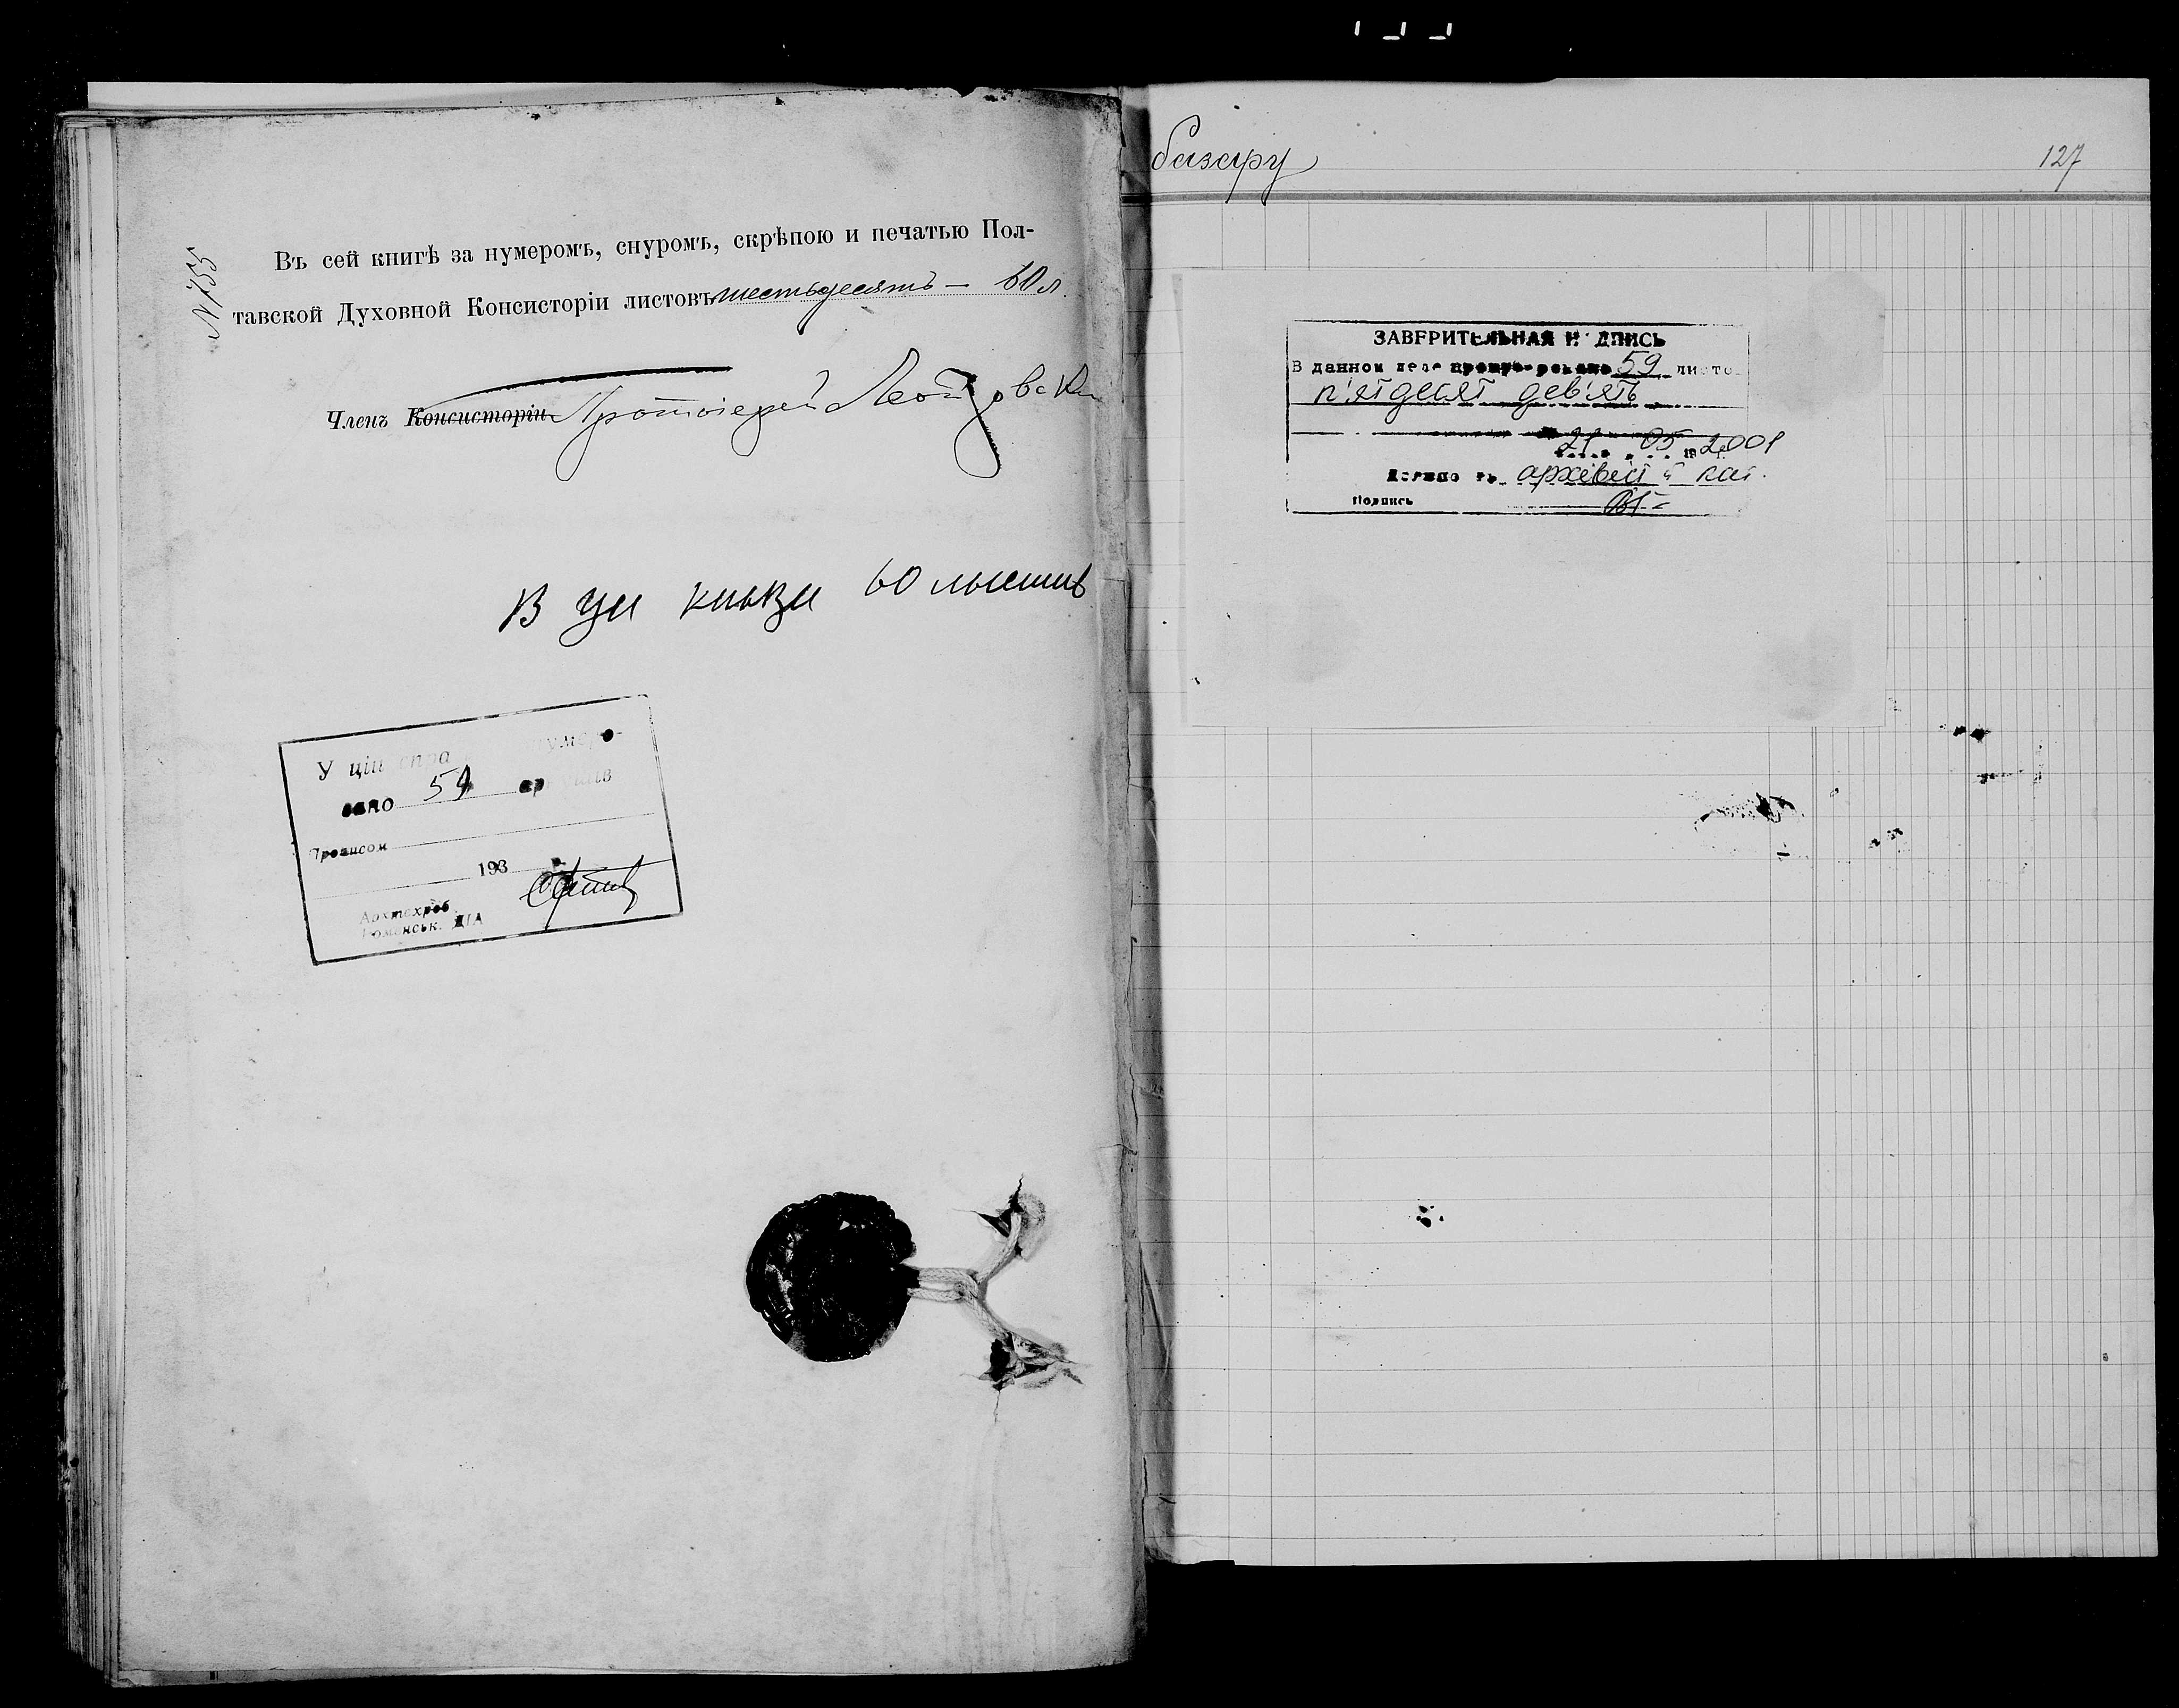 № 755
Въ сей книгѣ за нумеромъ, снуромъ, скрѣпою и печатью Пол-
тавской Духовной Консисторіи листовъ шестьдесятъ — 60 л.
Членъ Консисторіи Протоіерей
В ци книзи 60 лыстив
У ціи спра нумеро-
вано 59 аркушів
Прописом
193
Архтехроб
Роменськ. ДІА
базару
127
ЗАВЕРИТЕЛЬНАЯ НАДПИСЬ
В данном деле пронумеровано 59 листо
п'ятдесят дев'ять
21 05 2001
архівіст
Подпись